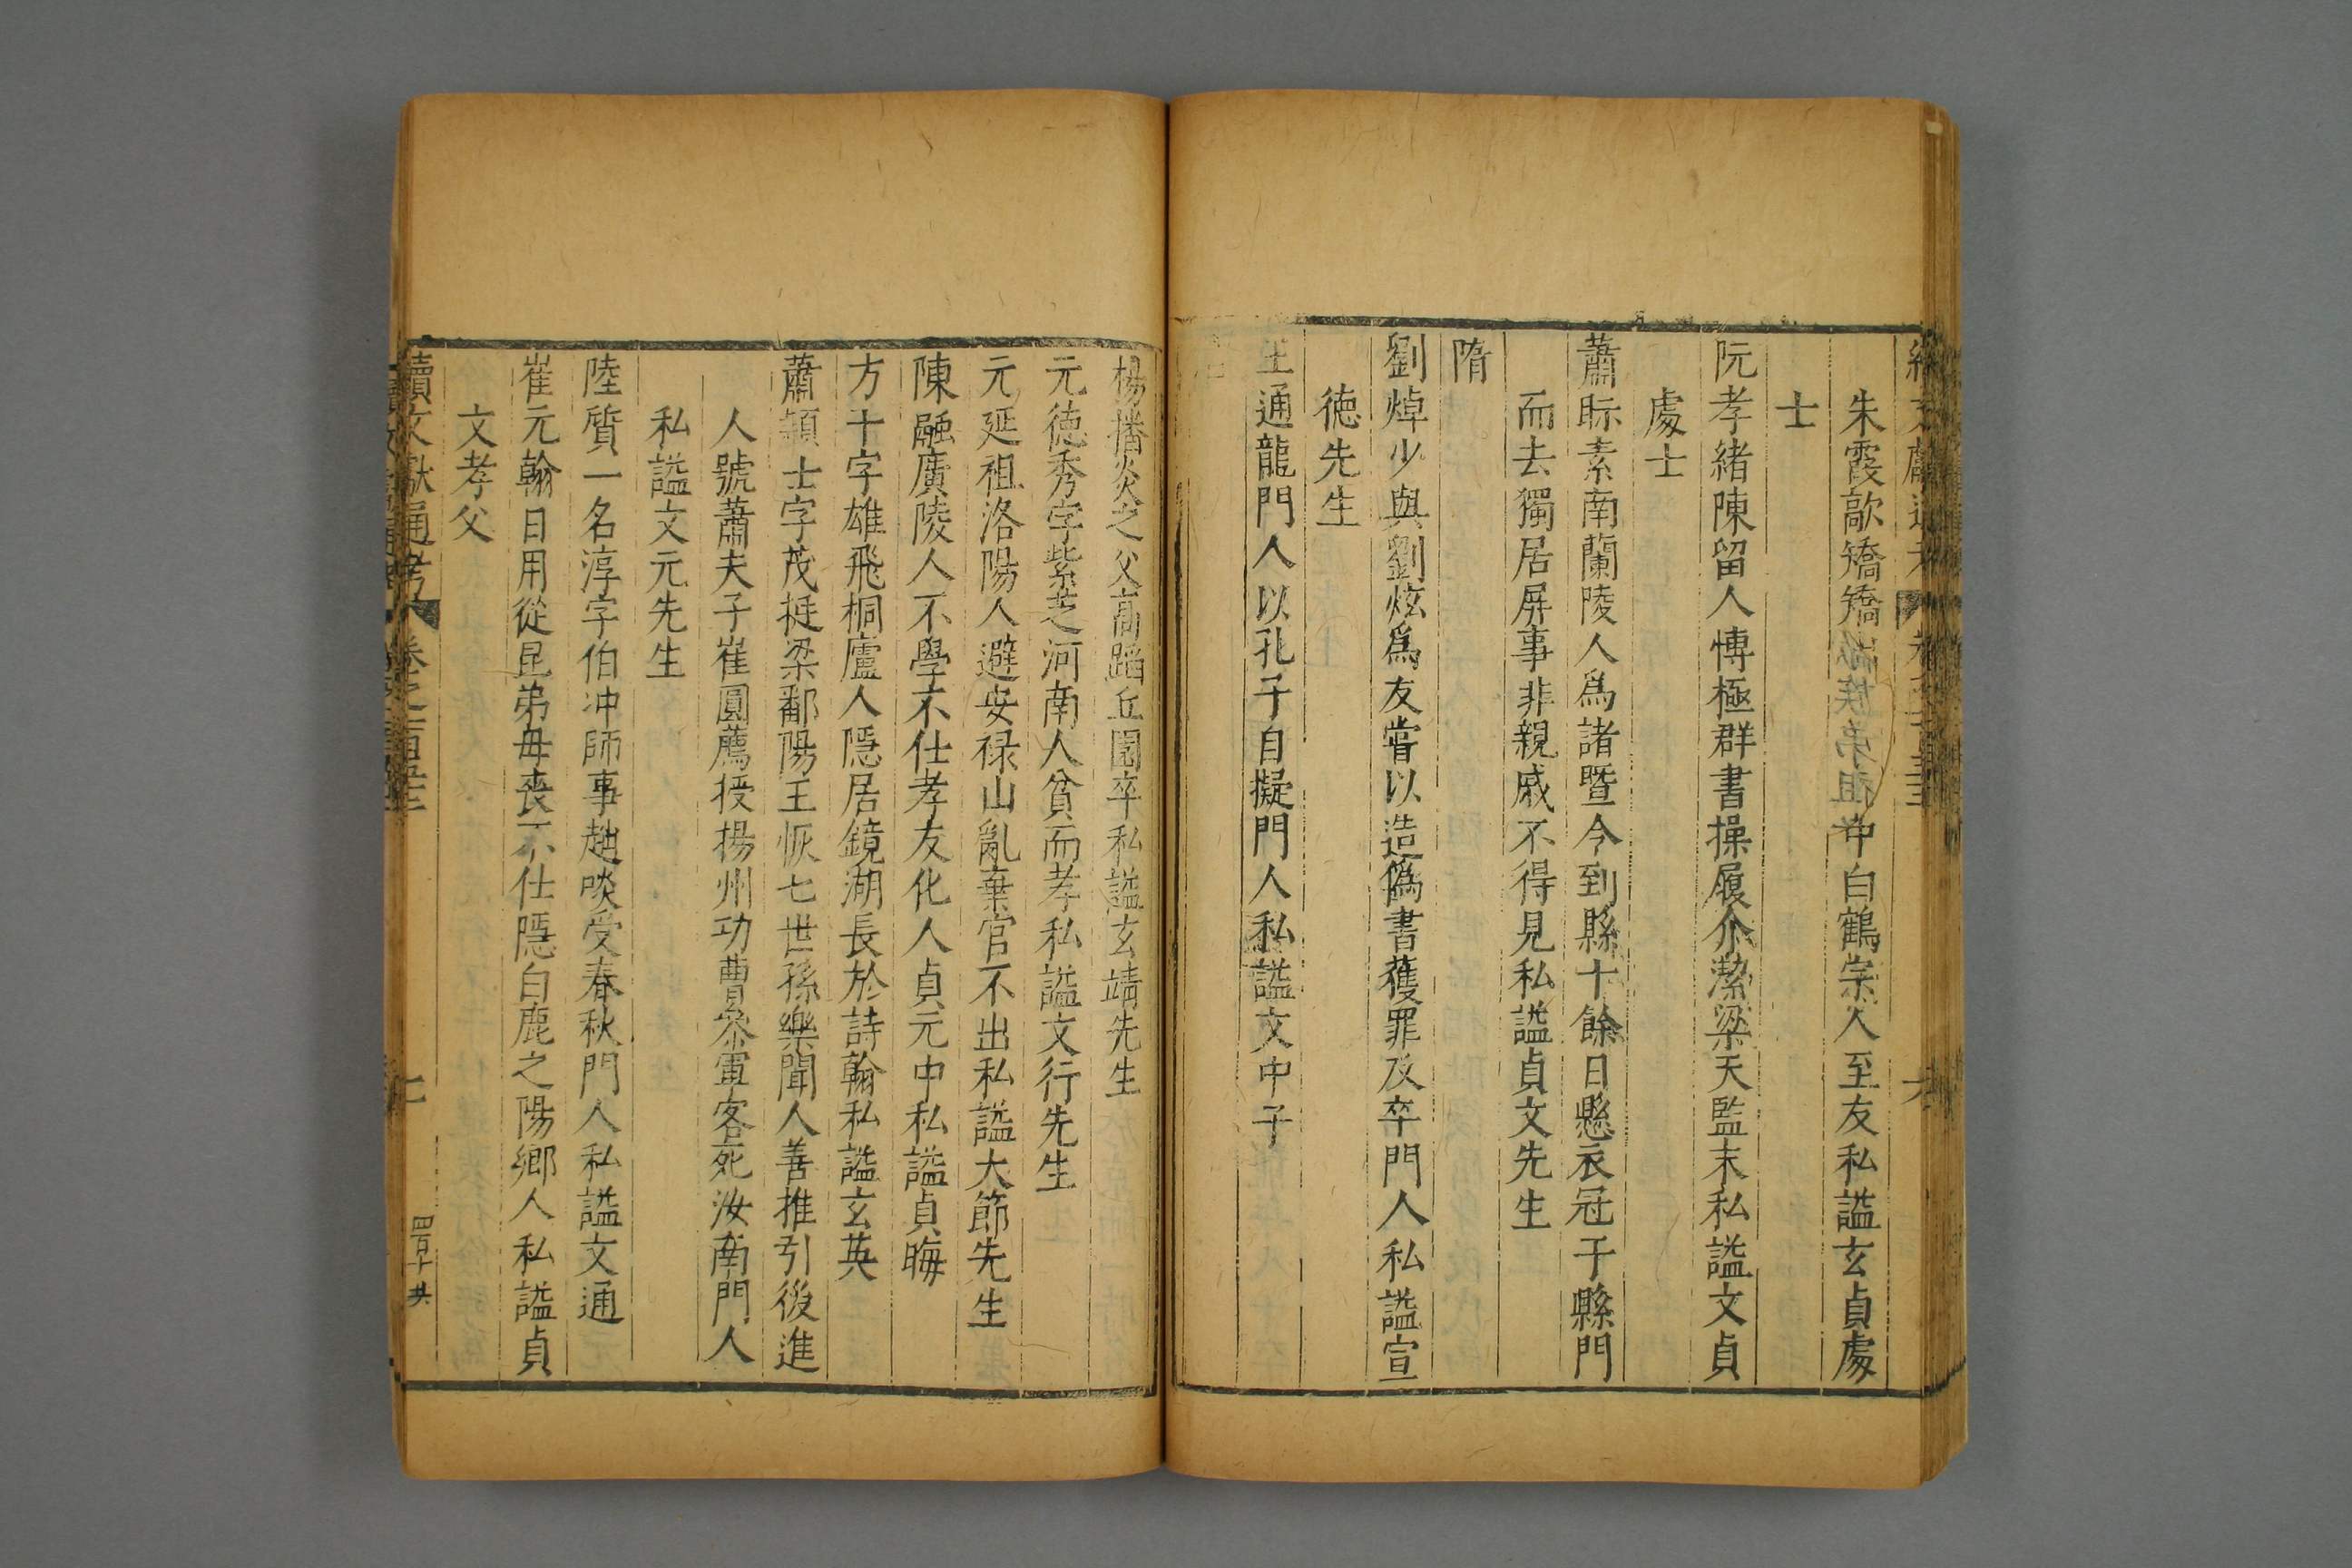 朱霞歊矯矯 中白鶴宗人至友私謚玄貞處
士
阮孝緒陳留人愽極群書操履介潔梁天監末私謚文貞
處士
蕭眎素南蘭陵人爲諸暨令到縣十餘日懸衣冠于縣門
而去獨居屏事非親戚不得見私謚貞文先生
隋
劉焯少與劉炫爲友嘗以造僞書獲罪及卒門人私謚宣
徳先生
王通龍門人以孔子自擬門人私謚文中子
楊播炎之父高蹈丘園卒私謚玄靖先生
元徳秀字紫芝河南人貧而孝私謚文行先生
元延祖洛陽人避安禄山亂棄官不出私謚大節先生
陳融廣陵人不學不仕孝友化人貞元中私謚貞晦
方十字雄飛桐廬人隱居鏡湖長於詩翰私謚玄英
蕭頴士字茂挺梁鄱陽王恢七世孫樂聞人善推引後進
人號蕭夫子崔圓薦授揚州功曹叅軍客死汝南門人
私謚文元先生
陸質一名淳字伯冲師事趙啖受春秋門人私謚文通
崔元翰日用從昆弟毋喪不仕隱白鹿之陽鄉人私謚貞
文孝父
續文獻通考 卷之